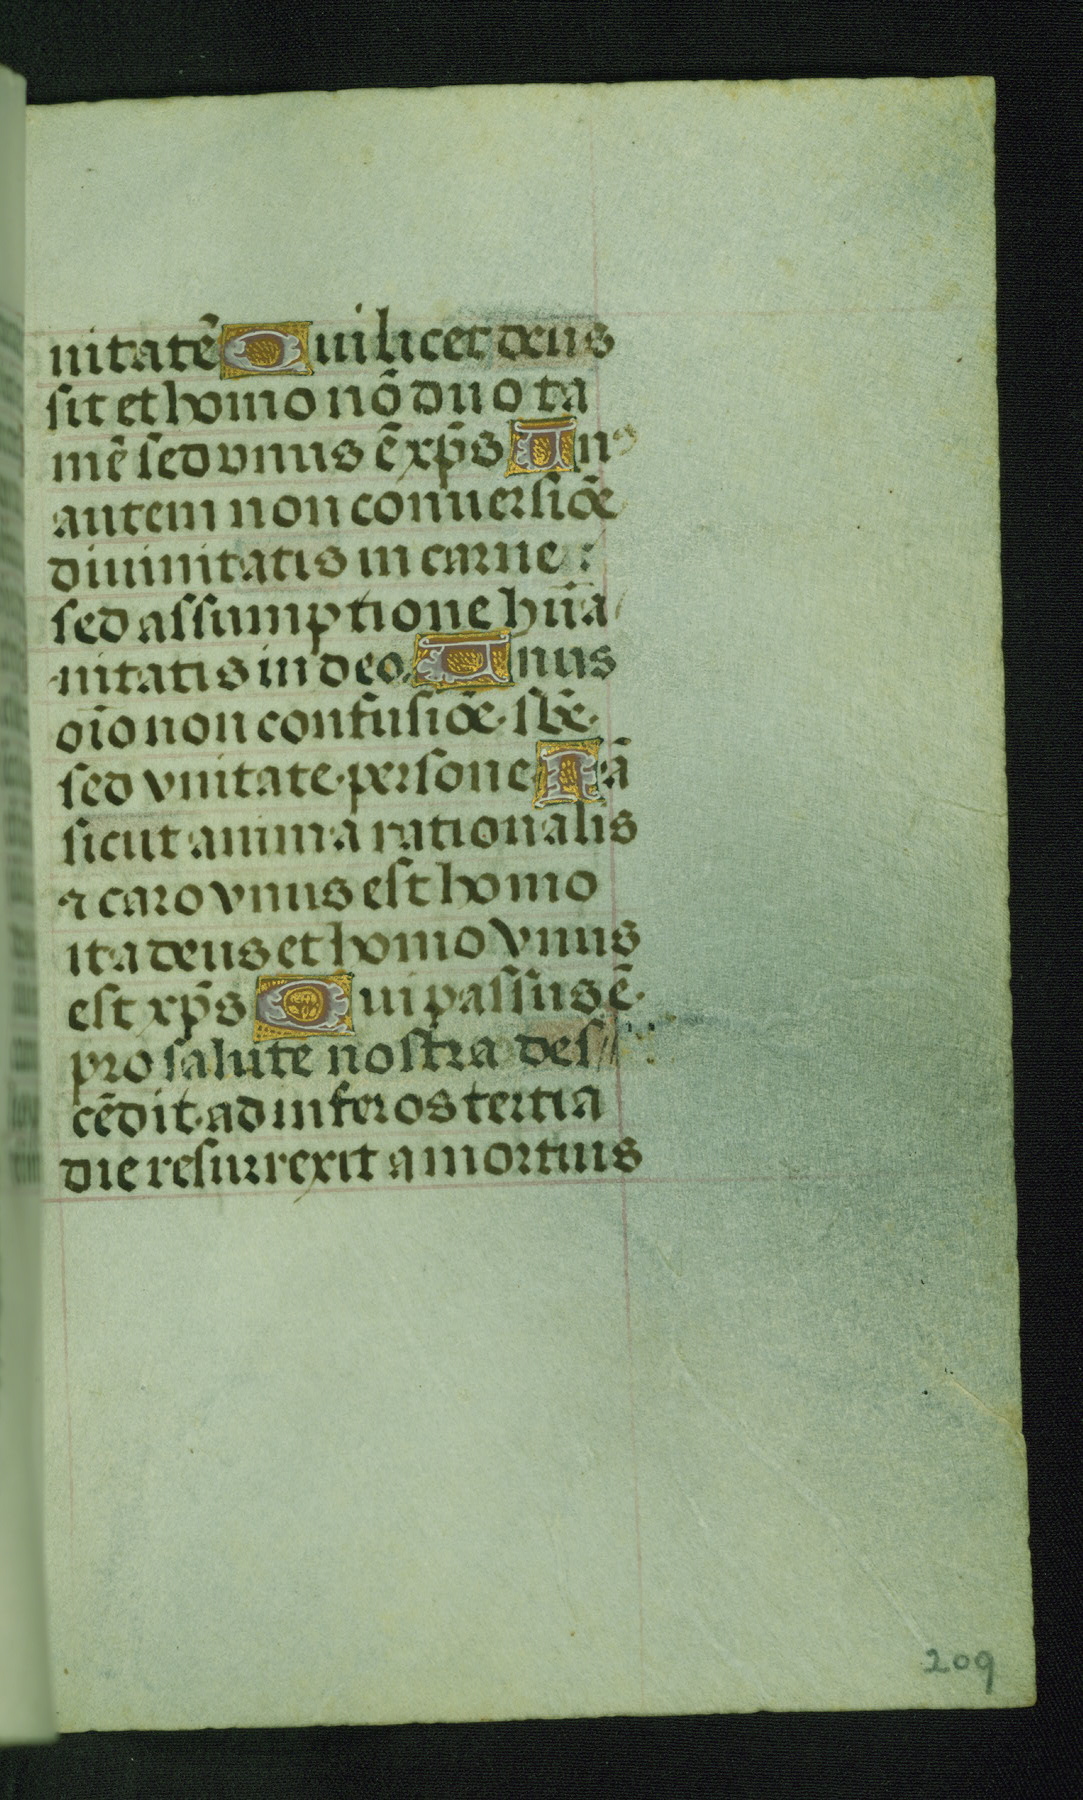 nitatē Qui licet deus
sit et homo nō duo ta
mē sed vnus ē xp̄s Vnꝰ
autem non conuersiōe
diuinitatis in carne :
sed assumptione hūa
nitatis in deo. Vnus
oīo non confusiōe. sb̄e.
sed vnitate persone Nā
sicut anima rationalis
⁊ caro vnus est homo
ita deus et homo vnus
est xp̄s Qui passus ē.
pro salute nostra des
cēdit ad inferos tertia
die resurrexit a mortuis
209